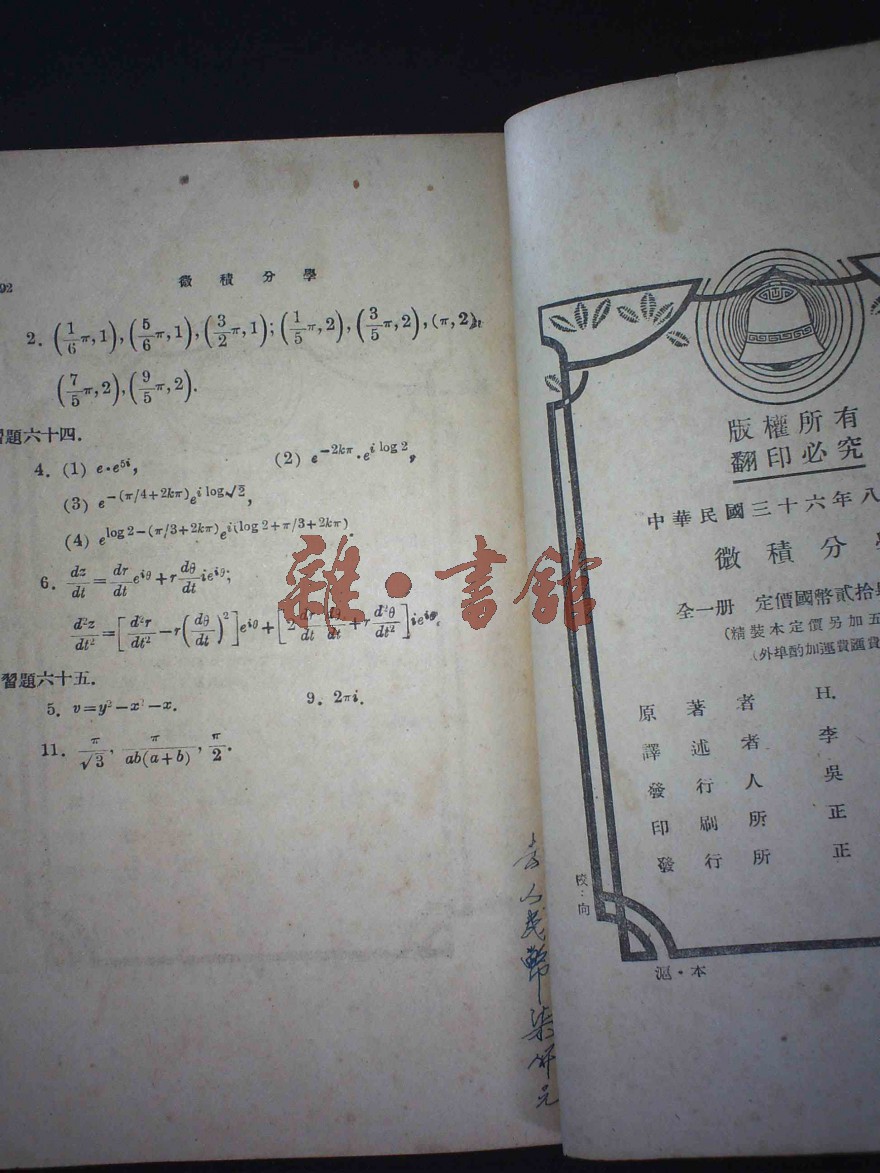 92 微積分學
2. (1/6 π, 1), (5/6 π, 1), (3/2 π, 1); (1/5 π, 2), (3/5 π, 2), (π, 2),
(7/5 π, 2), (9/5 π, 2).
習題六十四.
4. (1) e·e^{5i}, (2) e^{-2kπ}·e^{i log 2},
(3) e^{-(π/4+2kπ)}e^{i log√2},
(4) e^{log 2-(π/3+2kπ)}e^{i(log 2+π/3+2kπ)}.
6. dz/dt = dr/dt e^{iθ} + r dθ/dt ie^{iθ};
d²z/dt² = [d²r/dt² - r(dθ/dt)²]e^{iθ} + [2 dr/dt dθ/dt + r d²θ/dt²]ie^{iθ}.
習題六十五.
5. v=y²-x²-x. 9. 2πi.
11. π/√3, π/ab(a+b), π/2.
雜·書館
人民幣柒仟元
版權所有
翻印必究
中華民國三十六年八
微積分學
全一册 定價國幣貳拾
(精裝本定價另加五
(外埠酌加運費匯費
原著者 H.
譯述者 李
發行人 吳
印刷所 正
發行所 正
校:向
滬·本